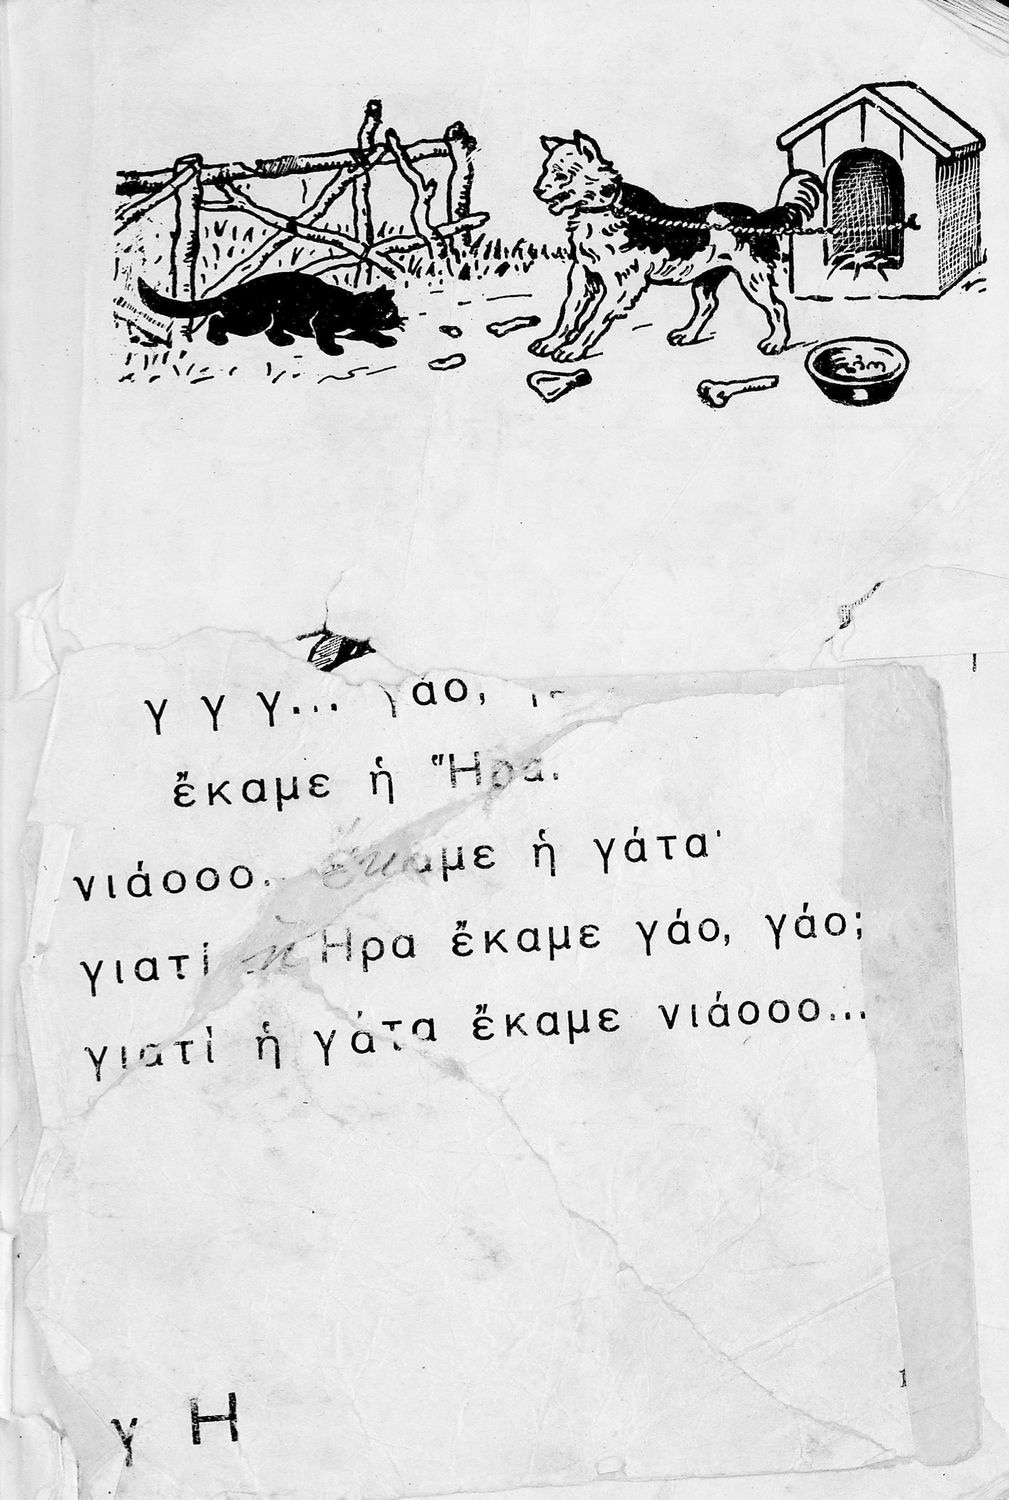 γ γ γ... γάο,
ἔκαμε ἡ Ἥρα.
νιάοοο. ἔκαμε ἡ γάτα·
γιατί ἡ Ἥρα ἔκαμε γάο, γάο;
γιατί ἡ γάτα ἔκαμε νιάοοο...
γ Η
1